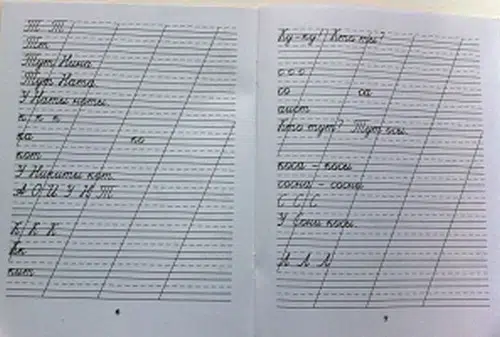 Т Т
Тт
Тут Нина.
Тут Ната.
У Наты ноты.
к к к
ка ко
кот
У Никиты кот.
А О И У Н Т
К К К
Кк
кит
6
Ку-ку! Кто три?
с с с
со са
аист
Кто тут? Тут осы.
коса - косы
сосна - сосны
С С С
У Сони косы.
Л Л Л
7